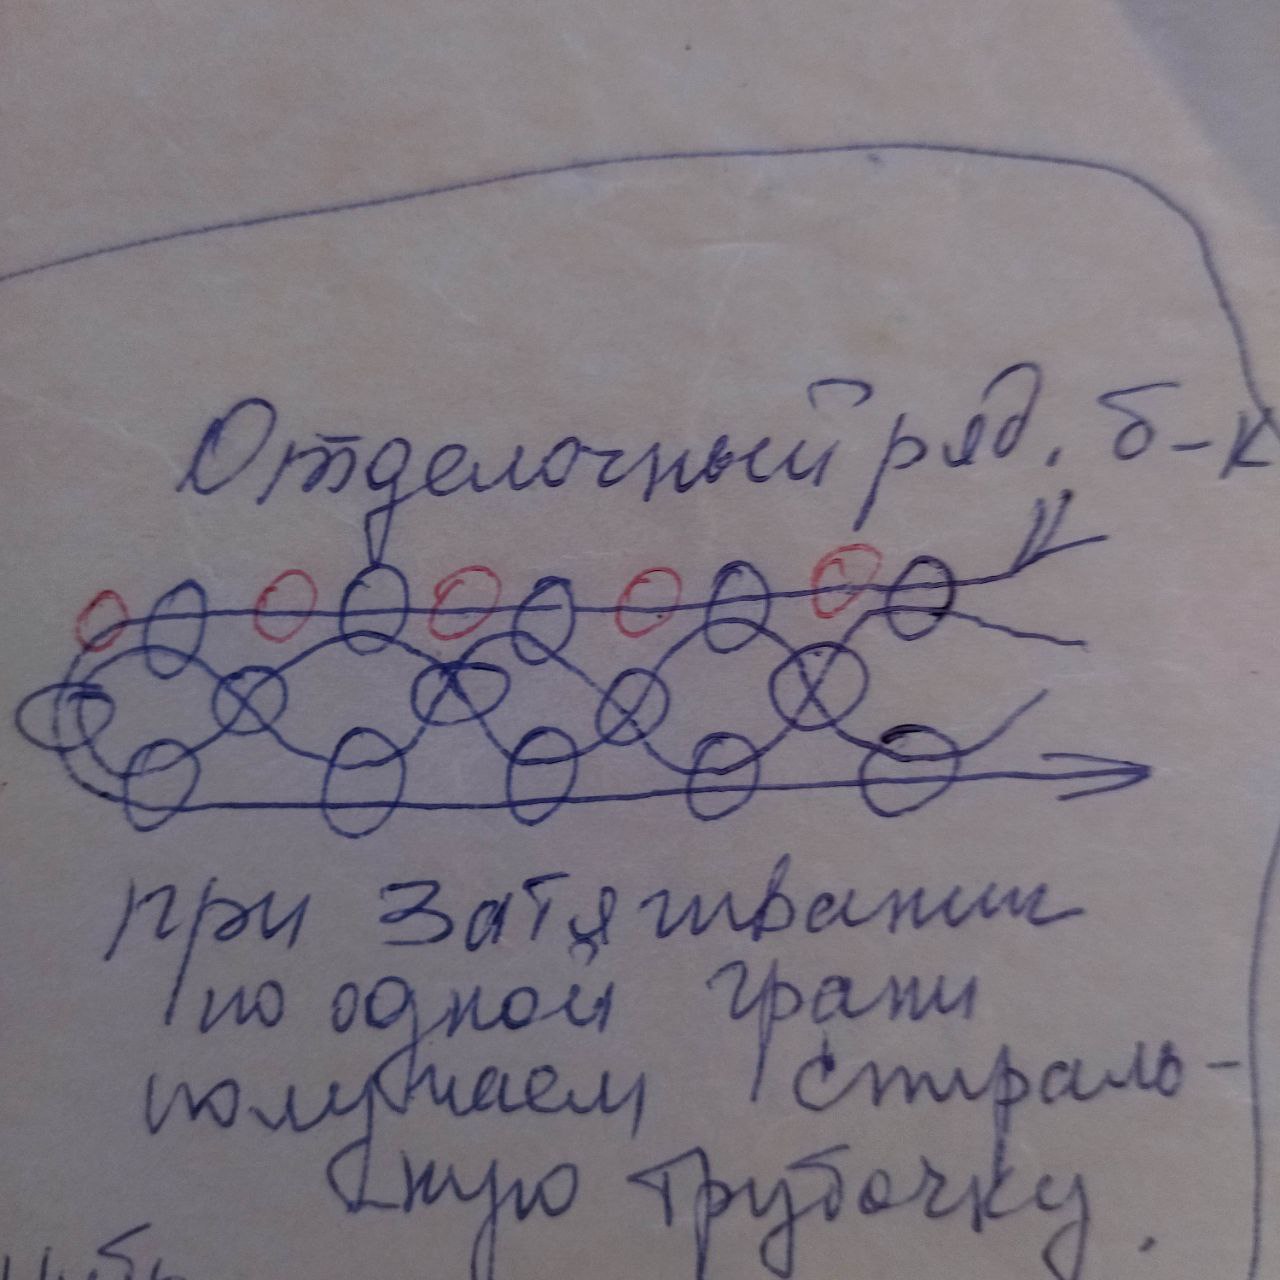 Отделочный ряд. б-к
при затягивании
по одной грани
получаем спираль-
ную трубочку.